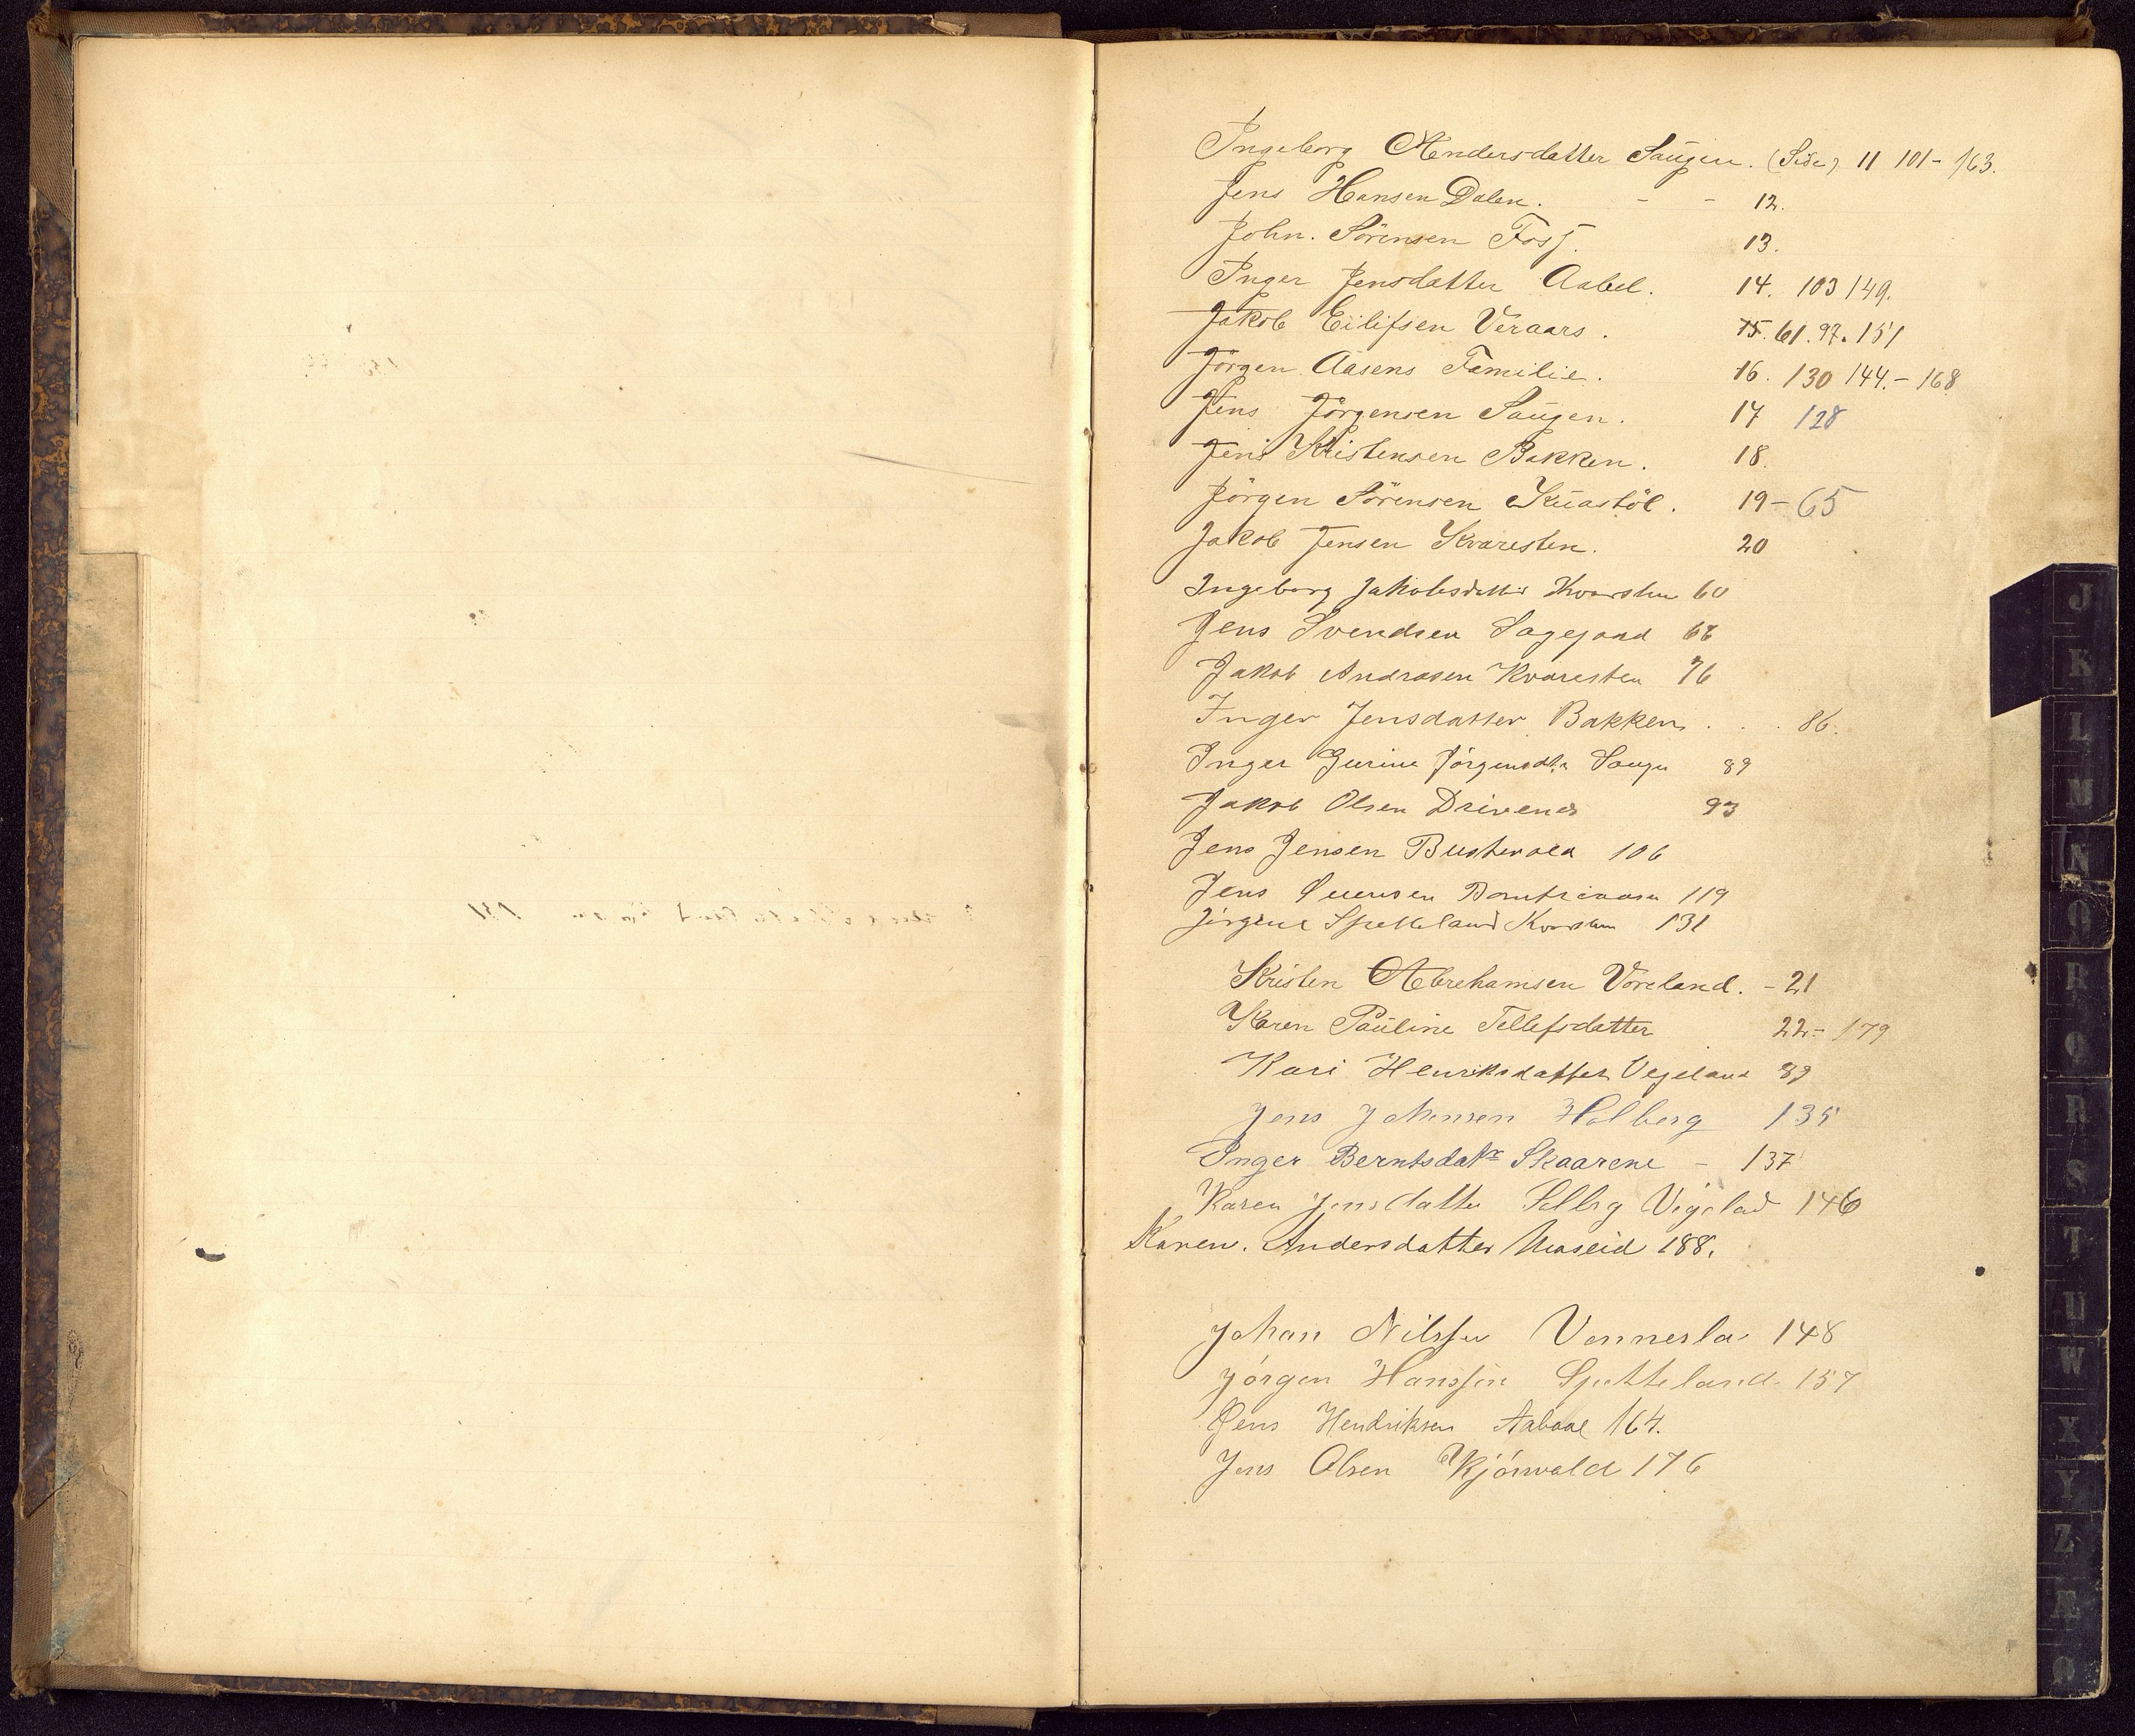 Ingeborg Andersdatter Saugen. (Sise) 11 101 - 163.
Jens Hansen Dalen. - - 12.
John. Sörensen Foss. 13.
Inger Jensdatter Aabel. 14. 103 149.
Jakob Eilifsen Veraas. 15. 61. 97. 151
Jörgen Aasens Familie. 16. 130 144. - 168
Jens Jörgensen Saugen. 17 128
Jens Kristensen Bakken. 18.
Jörgen Sörensen Kuastöl. 19 - 65
Jakob Jensen Kvaresten. 20
Ingeborg Jakobsdatter Kvarsten 60
Jens Svendsen 66
Jakob Andrasen Kvaresten 76
Inger Jensdatter Bakken . . . 86.
Inger Gurine Jörgensdtr Saugen 89
Jakob Olsen Drivenes 93
Jens Jensen 106
Jens 119
Jörgine Spetteland Kvarsten 131
Kristen Abrehamsen Vöreland. - 21
Karen Pauline Tellefsdatter 22 - 179
Kari Henriksdatter Vegeland 89
Jens Johnsen Holberg 135
Inger Berntsdatr Skaarene - 137
Karen Jensdatter Solbrg Vigelad 146
Karen. Andersdatter 188.
Johan Nilssen Vennesla 148
Jörgen Hanssen Spetteland 157
Jens Hendriksen 164.
Jens Olsen 176
J
K
L
M
N
O
P
Q
R
S
T
U
W
X
Y
Z
Æ
Ø